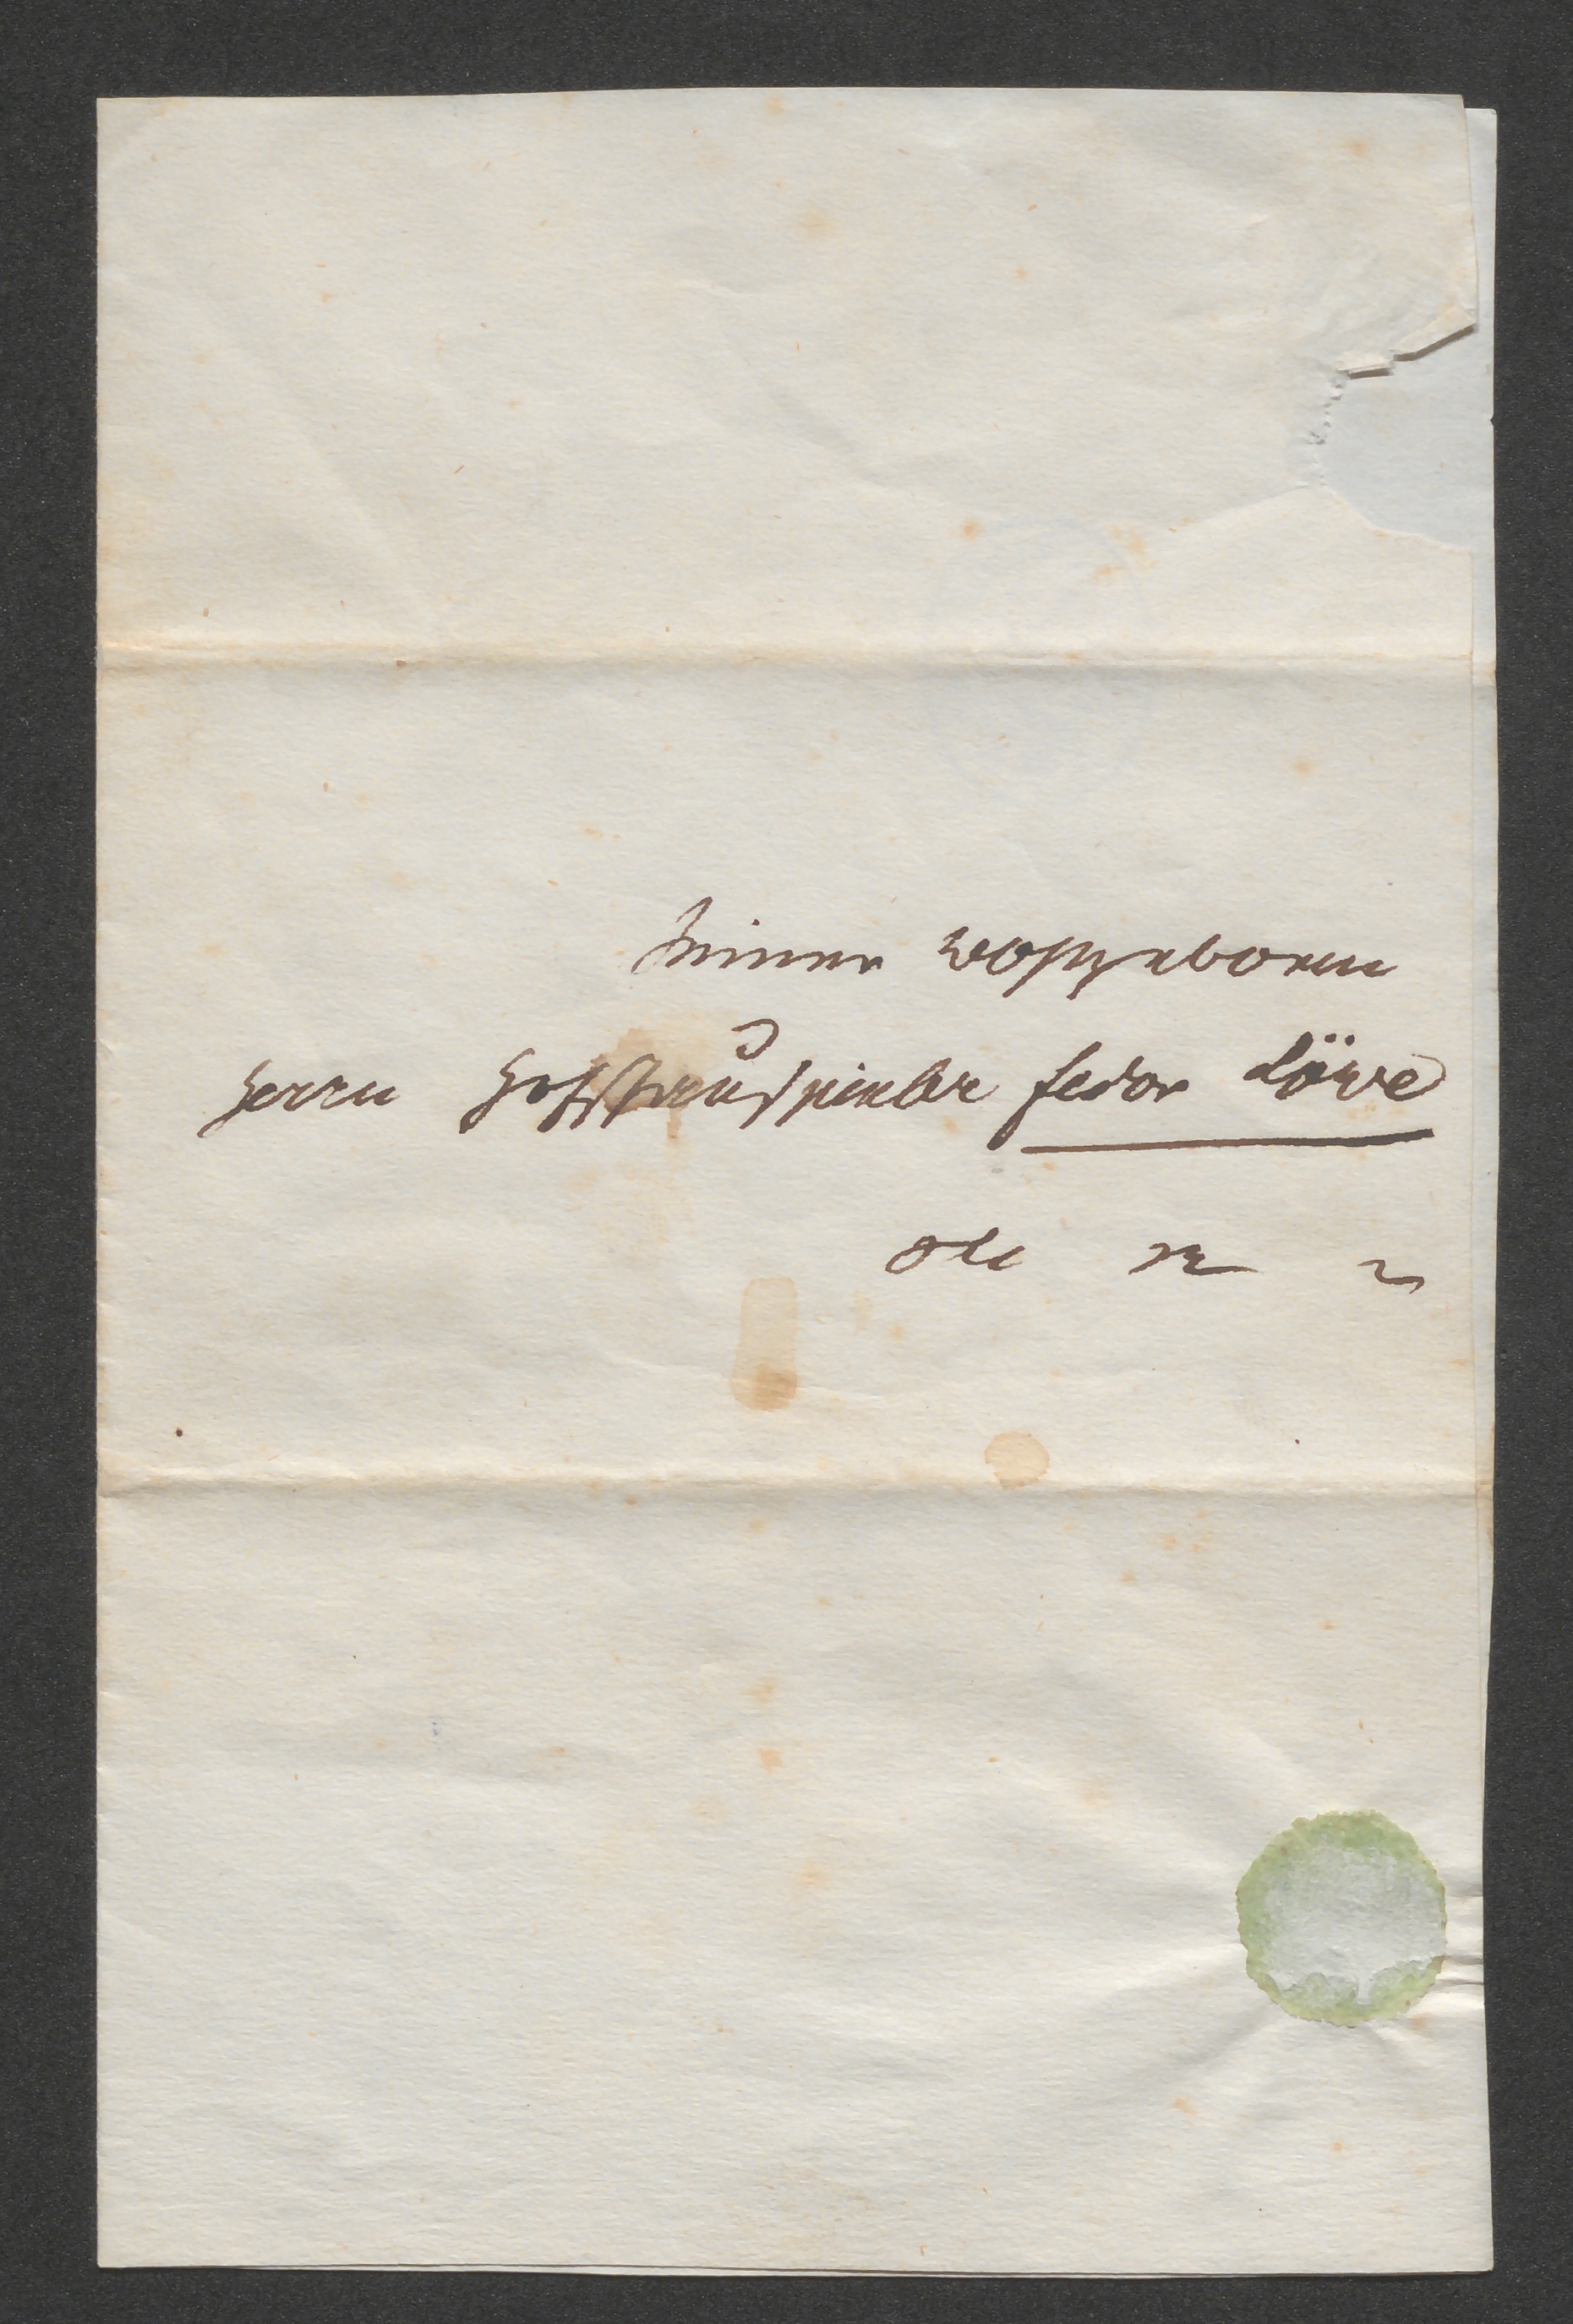 Seiner Wohlgeboren
Herrn Hofschauspieler Fedor Löwe